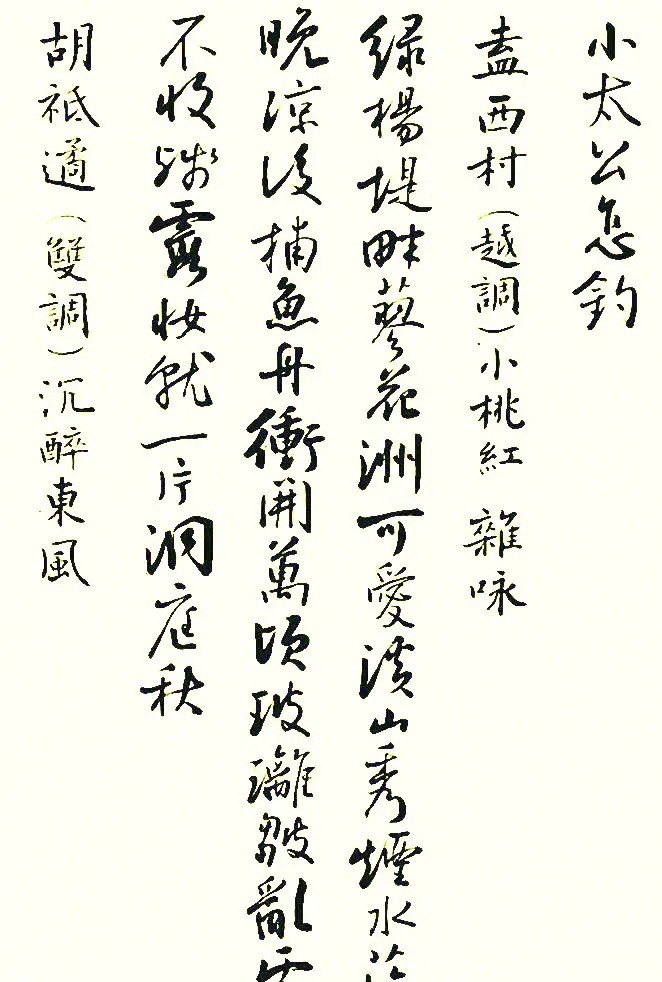 小太公怎釣
盍西村（越調）小桃紅 雜咏
緑楊堤畔蓼花洲可愛溪山秀煙水
晚涼後捕魚舟衝開萬頃玻璃皺亂
不收殘霞妝就一片洞庭秋
胡祗遹（雙調）沉醉東風